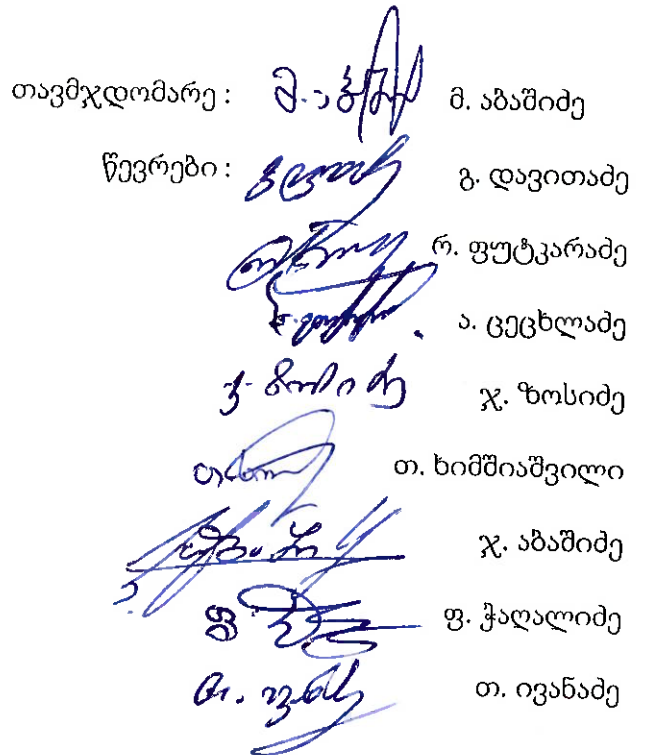 თავმჯდომარე : მ. აბაშიძე
წევრები : გ. დავითაძე
რ. ფუტკარაძე
ა. ცეცხლაძე
ჯ. ზოსიძე
თ. ხიმშიაშვილი
ჯ. აბაშიძე
ფ. ჭაღალიძე
თ. ივანაძე